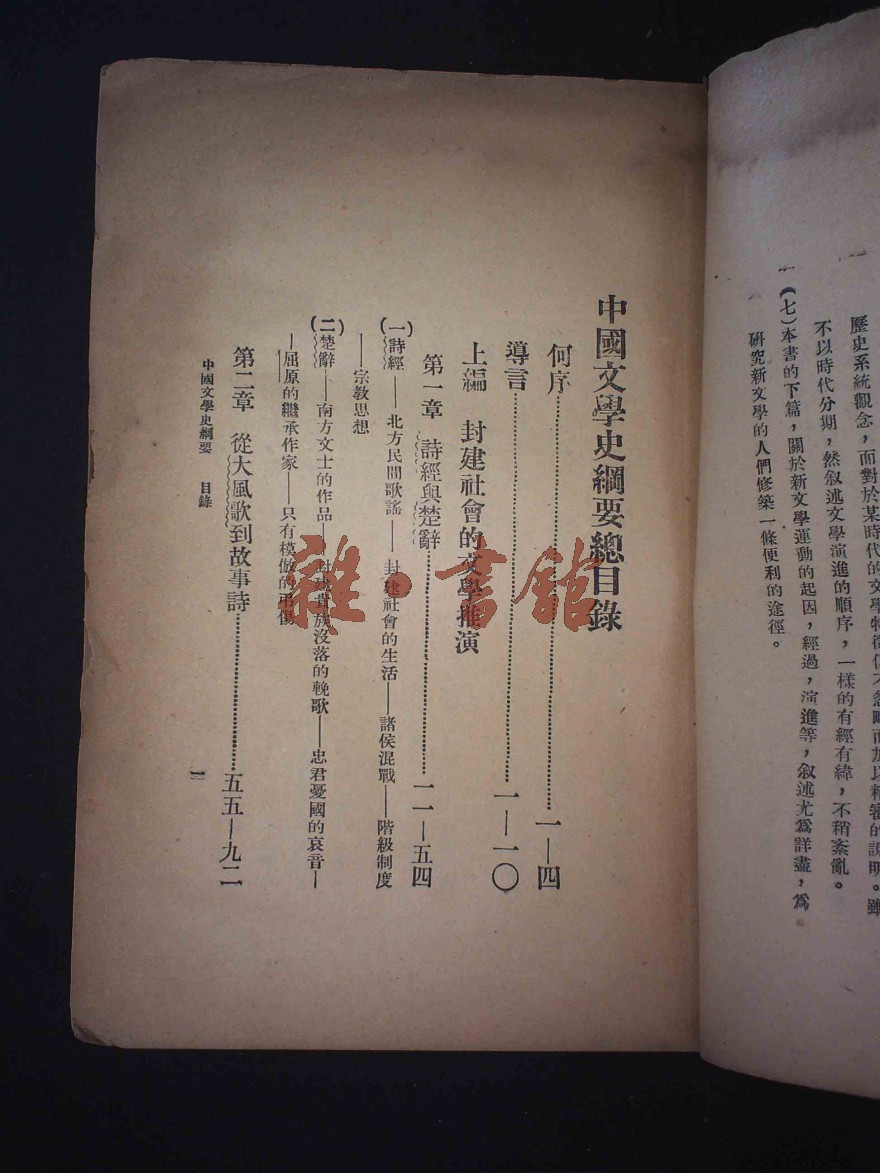 歷史系統觀念，而對於某時代的文學特徵仍不忽略而加以精審的說明。雖
不以時代分期，然叙述文學演進的順序，一樣的有經有緯，不稍紊亂。
一（七）本書的下篇，關於新文學運動的起因，經過，演進等，叙述尤爲詳盡，爲
研究新文學的人們修築一條便利的途徑。
中國文學史綱要總目錄
何序……一—四
導言……一—一〇
上編　封建社會的文學推演
第一章　詩經與楚辭……一一—五四
（一）詩經——北方民間歌謠——封建社會的生活——諸侯混戰——階級制度
——宗教思想
（二）楚辭——南方文士的作品——封建貴族沒落的輓歌——忠君憂國的哀音—
—屈原的繼承作家——只有模倣的弔傷
第二章　從大風歌到故事詩……五五—九二
中國文學史綱要　目錄
一
雜·書館